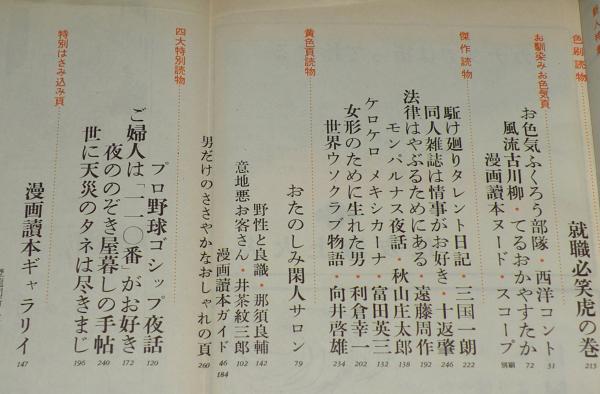 色刷読物
就職必笑虎の巻 213
お馴染みお色気頁
お色気ふくろう部隊・西洋コント 31
風流古川柳・てるおかやすたか 72
漫画讀本ヌード・スコープ 別刷
傑作読物
駈け廻りタレント日記・三国一朗 222
同人雑誌は情事がお好き・十返肇 246
法律はやぶるためにある・遠藤周作 192
モンパルナス夜話・秋山庄太郎 138
ケロケロ メキシカーナ・富田英三 132
女形のために生れた男・利倉幸一 202
世界ウソクラブ物語・向井啓雄 234
黄色頁読物
おたのしみ閑人サロン 79
野性と良識・那須良輔 142
意地悪お客さん・井茶紋三郎 102
漫画讀本ガイド 46 184
男だけのささやかなおしゃれの頁 260
四大特別読物
プロ野球ゴシップ夜話 120
ご婦人は「一一〇番」がお好き 172
夜ののぞき屋暮しの手帖 240
世に天災のタネは尽きまじ 196
特別はさみ込み頁
漫画讀本ギャラリイ 147